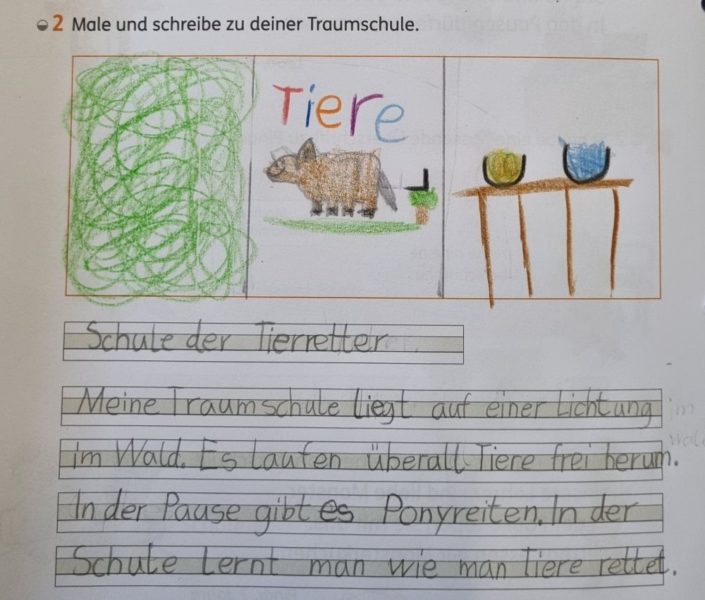 2 Male und schreibe zu deiner Traumschule.
Tiere
Schule der Tierretter
Meine Traumschule liegt auf einer Lichtung
im Wald. Es laufen überall Tiere frei herum.
In der Pause gibt es Ponyreiten. In der
Schule Lernt man wie man Tiere rettet.